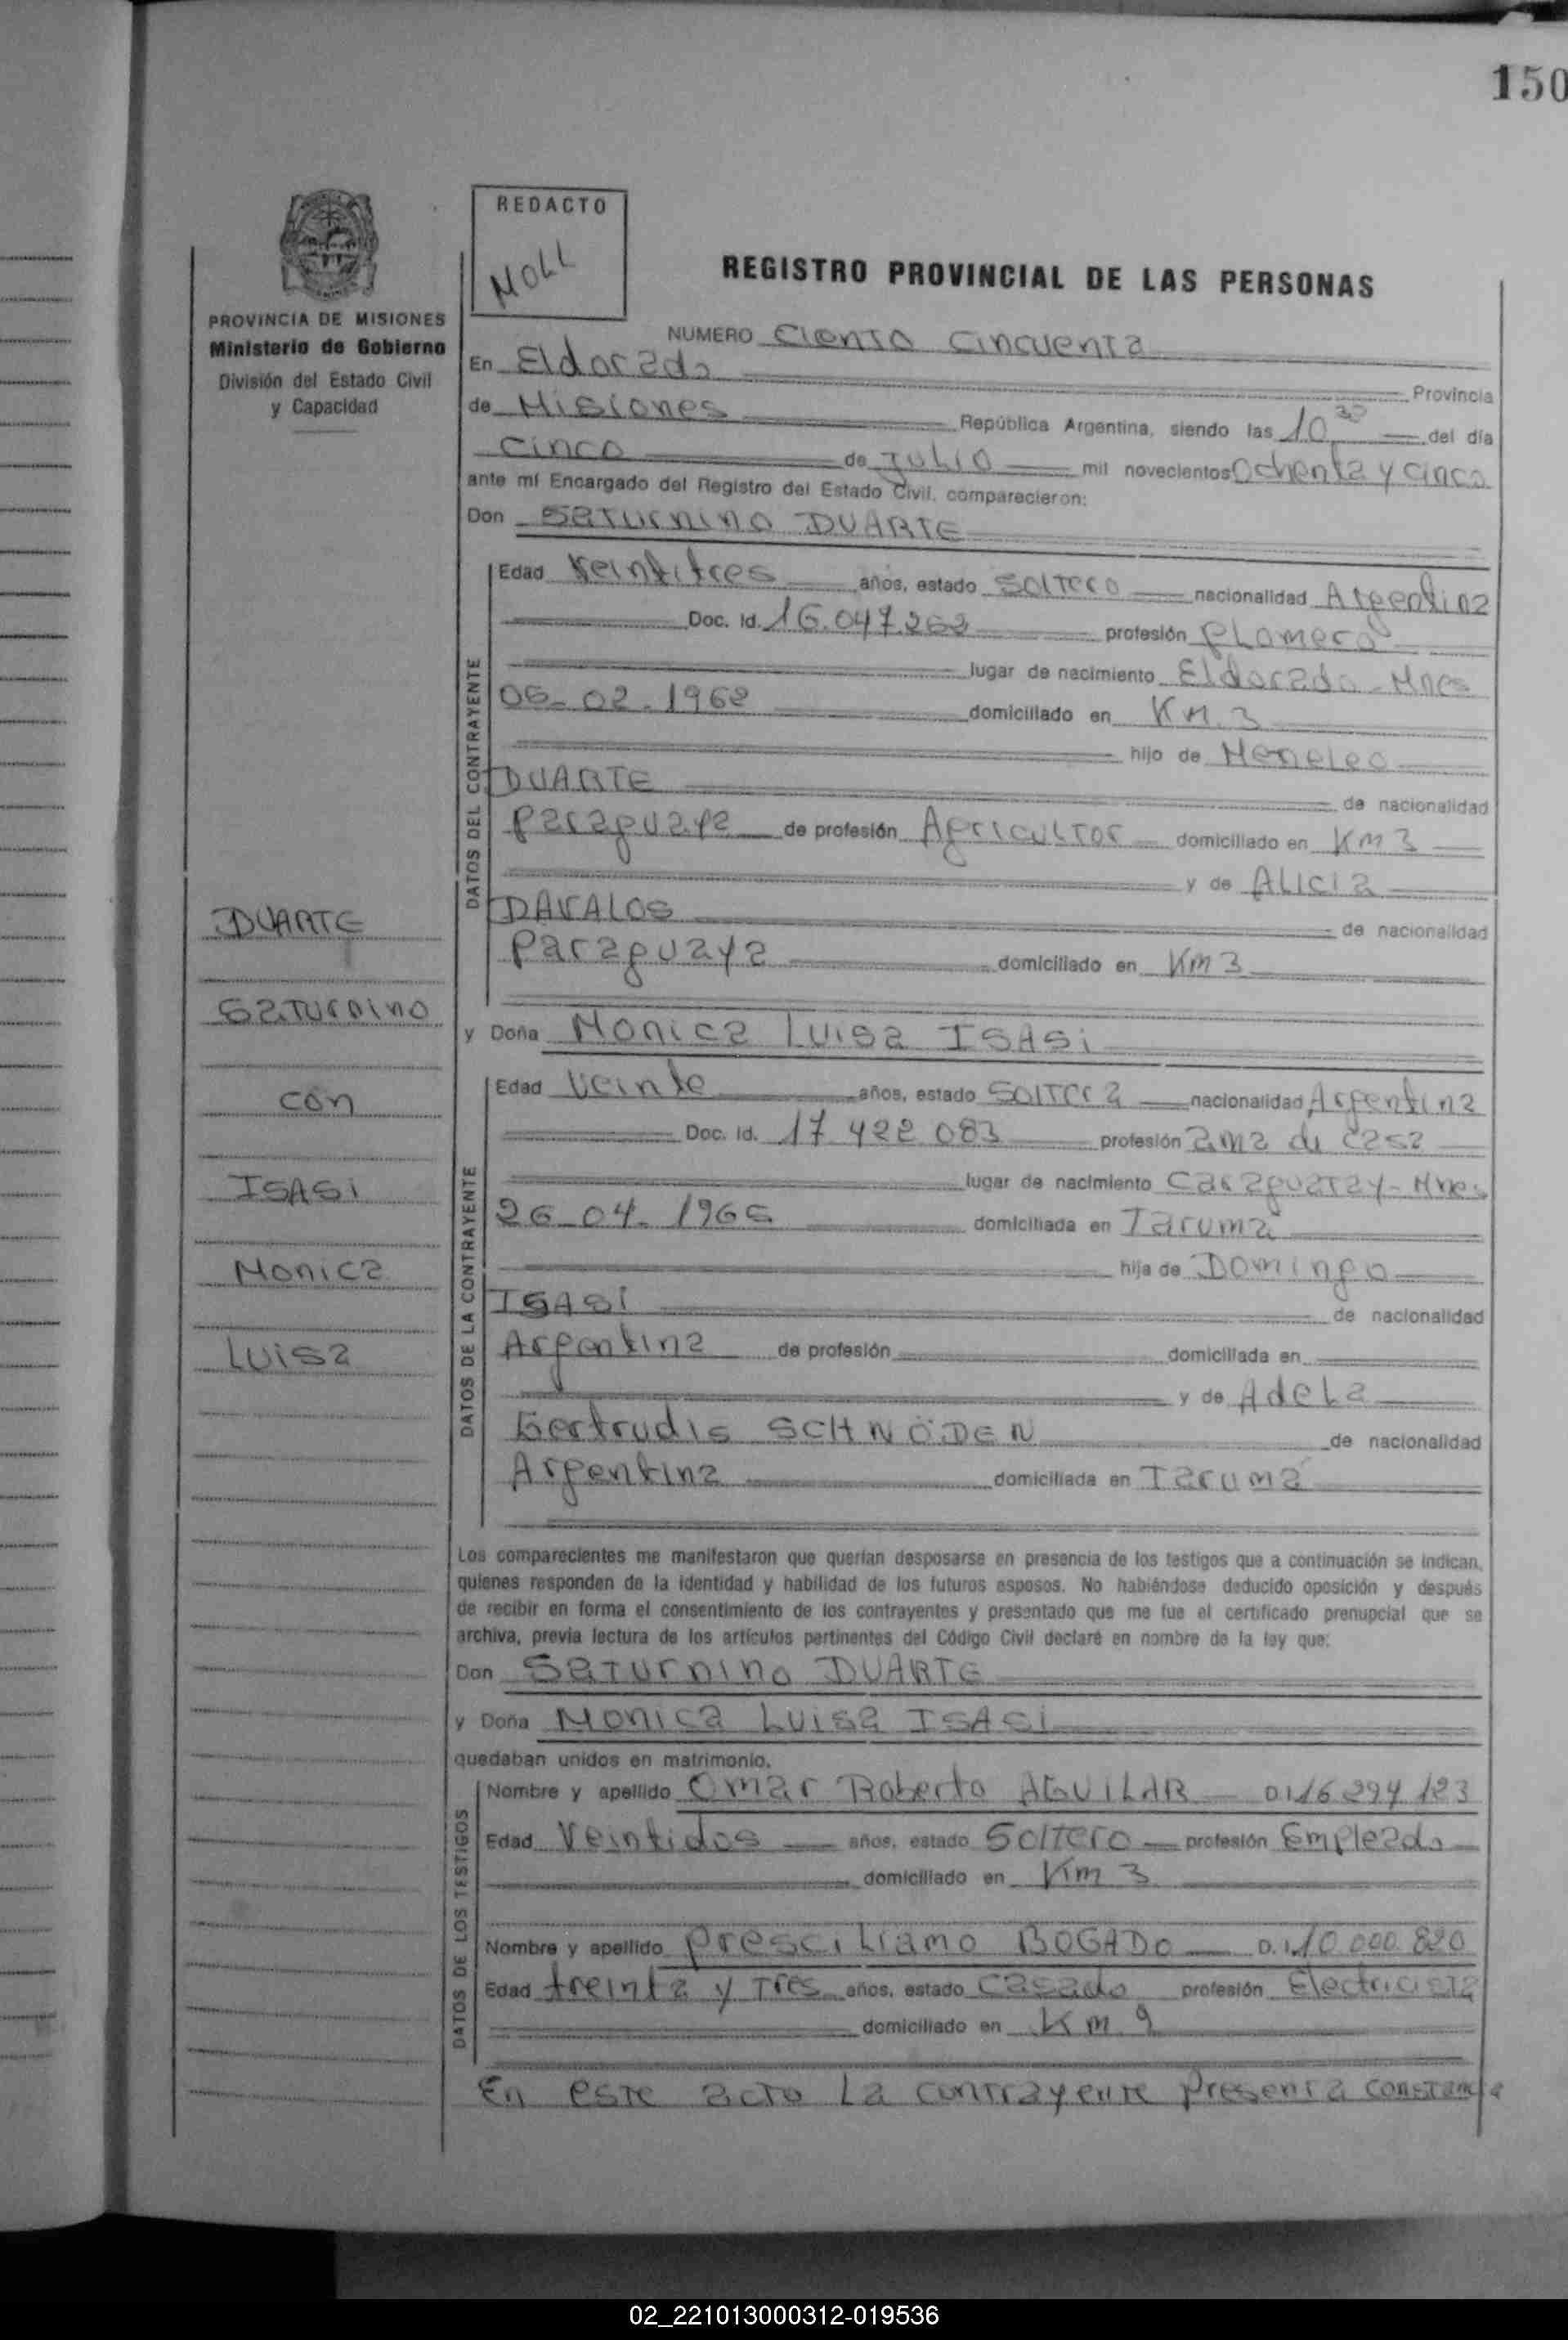 150
REDACTO
MOLL
REGISTRO PROVINCIAL DE LAS PERSONAS
PROVINCIA DE MISIONES
Ministerio de Gobierno
División del Estado Civil
y Capacidad
NUMERO Ciento Cincuenta
En Eldorado Provincia
de Misiones República Argentina, siendo las 10,30 del día
Cinco de Julio mil novecientos Ochenta y Cinco
ante mí Encargado del Registro del Estado Civil, comparecieron:
Don Saturnino DUARTE
DATOS DEL CONTRAYENTE
Edad Veintitres años, estado Soltero nacionalidad Argentina
Doc. Id. 16.047.262 profesión Plomero
lugar de nacimiento Eldorado - Mnes
06-02-1962 domiciliado en KM.3
hijo de Meneleo
DUARTE de nacionalidad
Paraguaya de profesión Agricultor domiciliado en Km 3
y de ALICIA
DAVALOS de nacionalidad
Paraguaya domiciliado en Km 3
y Doña Monica Luisa ISASI
DATOS DE LA CONTRAYENTE
Edad Veinte años, estado Soltera nacionalidad Argentina
Doc. Id. 17 422 083 profesión ama de casa
lugar de nacimiento Caraguatay - Mnes
26-04-1965 domiciliada en Taruma
hija de Domingo
ISASI de nacionalidad
Argentina de profesión domiciliada en
y de Adela
Gertrudis SCHNÖDEN de nacionalidad
Argentina domiciliada en Tarumá
DUARTE
Saturnino
con
ISASI
Monica
Luisa
Los comparecientes me manifestaron que querían desposarse en presencia de los testigos que a continuación se indican,
quienes responden de la identidad y habilidad de los futuros esposos. No habiéndose deducido oposición y después
de recibir en forma el consentimiento de los contrayentes y presentado que me fue el certificado prenupcial que se
archiva, previa lectura de los artículos pertinentes del Código Civil declaré en nombre de la ley que:
Don Saturnino DUARTE
y Doña Monica Luisa ISASI
quedaban unidos en matrimonio.
DATOS DE LOS TESTIGOS
Nombre y apellido Omar Roberto AGUILAR D.I. 16 294 123
Edad Veintidos años, estado Soltero profesión Empleado
domiciliado en Km 3
Nombre y apellido Presciliamo BOGADO D.I. 10 000 820
Edad treinta y Tres años, estado Casado profesión Electricista
domiciliado en Km 9
En este acto La contrayente presenta constancia
02_221013000312-019536